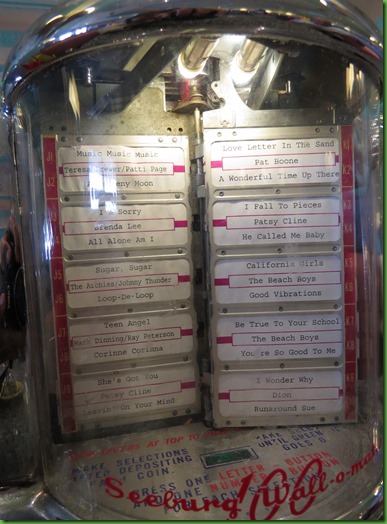 J1
Music Music Music
Teresa Brewer/Patti Page
J2
Moon
Sorry
Brenda Lee
All Alone Am I
J5
Sugar, Sugar
The Archies/Johnny Thunder
J6
Loop-De-Loop
J7
Teen Angel
Mark Dinning/Ray Peterson
Corinne Corinna
She's Got You
Patsy Cline
Leavin' On Your Mind
K1
Love Letter In The Sand
Pat Boone
K2
A Wonderful Time Up There
I Fall To Pieces
Patsy Cline
He Called Me Baby
K5
California Girls
The Beach Boys
K6
Good Vibrations
K7
Be True To Your School
The Beach Boys
K8
You're So Good To Me
I Wonder Why
Dion
Runaround Sue
AT TOP TO
MAKE SELECTIONS
AFTER DEPOSITING
COIN.
PRESS ONE LETTER BUTTON
NUMBER
UNTIL GREEN
Seeburg Wall-o-mat
100